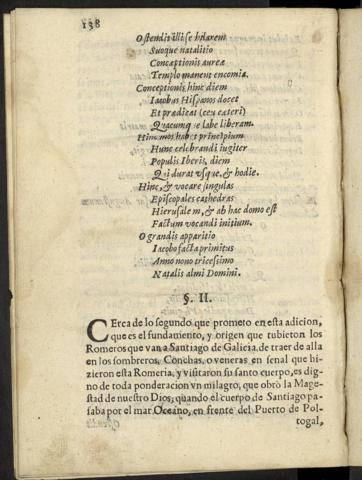 138
Ostendit illi se hilarem
Suoque natalitio
Conceptionis aureæ
Templo manens encomia.
Conceptionis hinc diem
Iacobus Hispanos docet
Et prædicat (ceu cæteri)
Quacumque labe liberam.
Hinc mos habet principium
Hunc celebrandi iugiter
Populis Iberis, diem
Qui durat vsque, & hodie.
Hinc, & vocare singulas
Episcopales cathedras
Hierusalem, & ab hac domo est
Factum vocandi initium.
O grandis apparitio
Iacobo facta primitus
Anno nono tricessimo
Natalis almi Domini.
§. II.
CErca de lo segundo que prometo en esta adicion,
que es el fundamento, y origen que tubieron los
Romeros que van a Santiago de Galicia, de traer de alla
en los sombreros, Conchas, o veneras en señal que hi-
zieron esta Romeria, y visitaron su santo cuerpo, es dig-
no de toda ponderacion vn milagro, que obrò la Mage-
stad de nuestro Dios, quando el cuerpo de Santiago pa-
saba por el mar Oceano, en frente del Puerto de Pol-
togal,